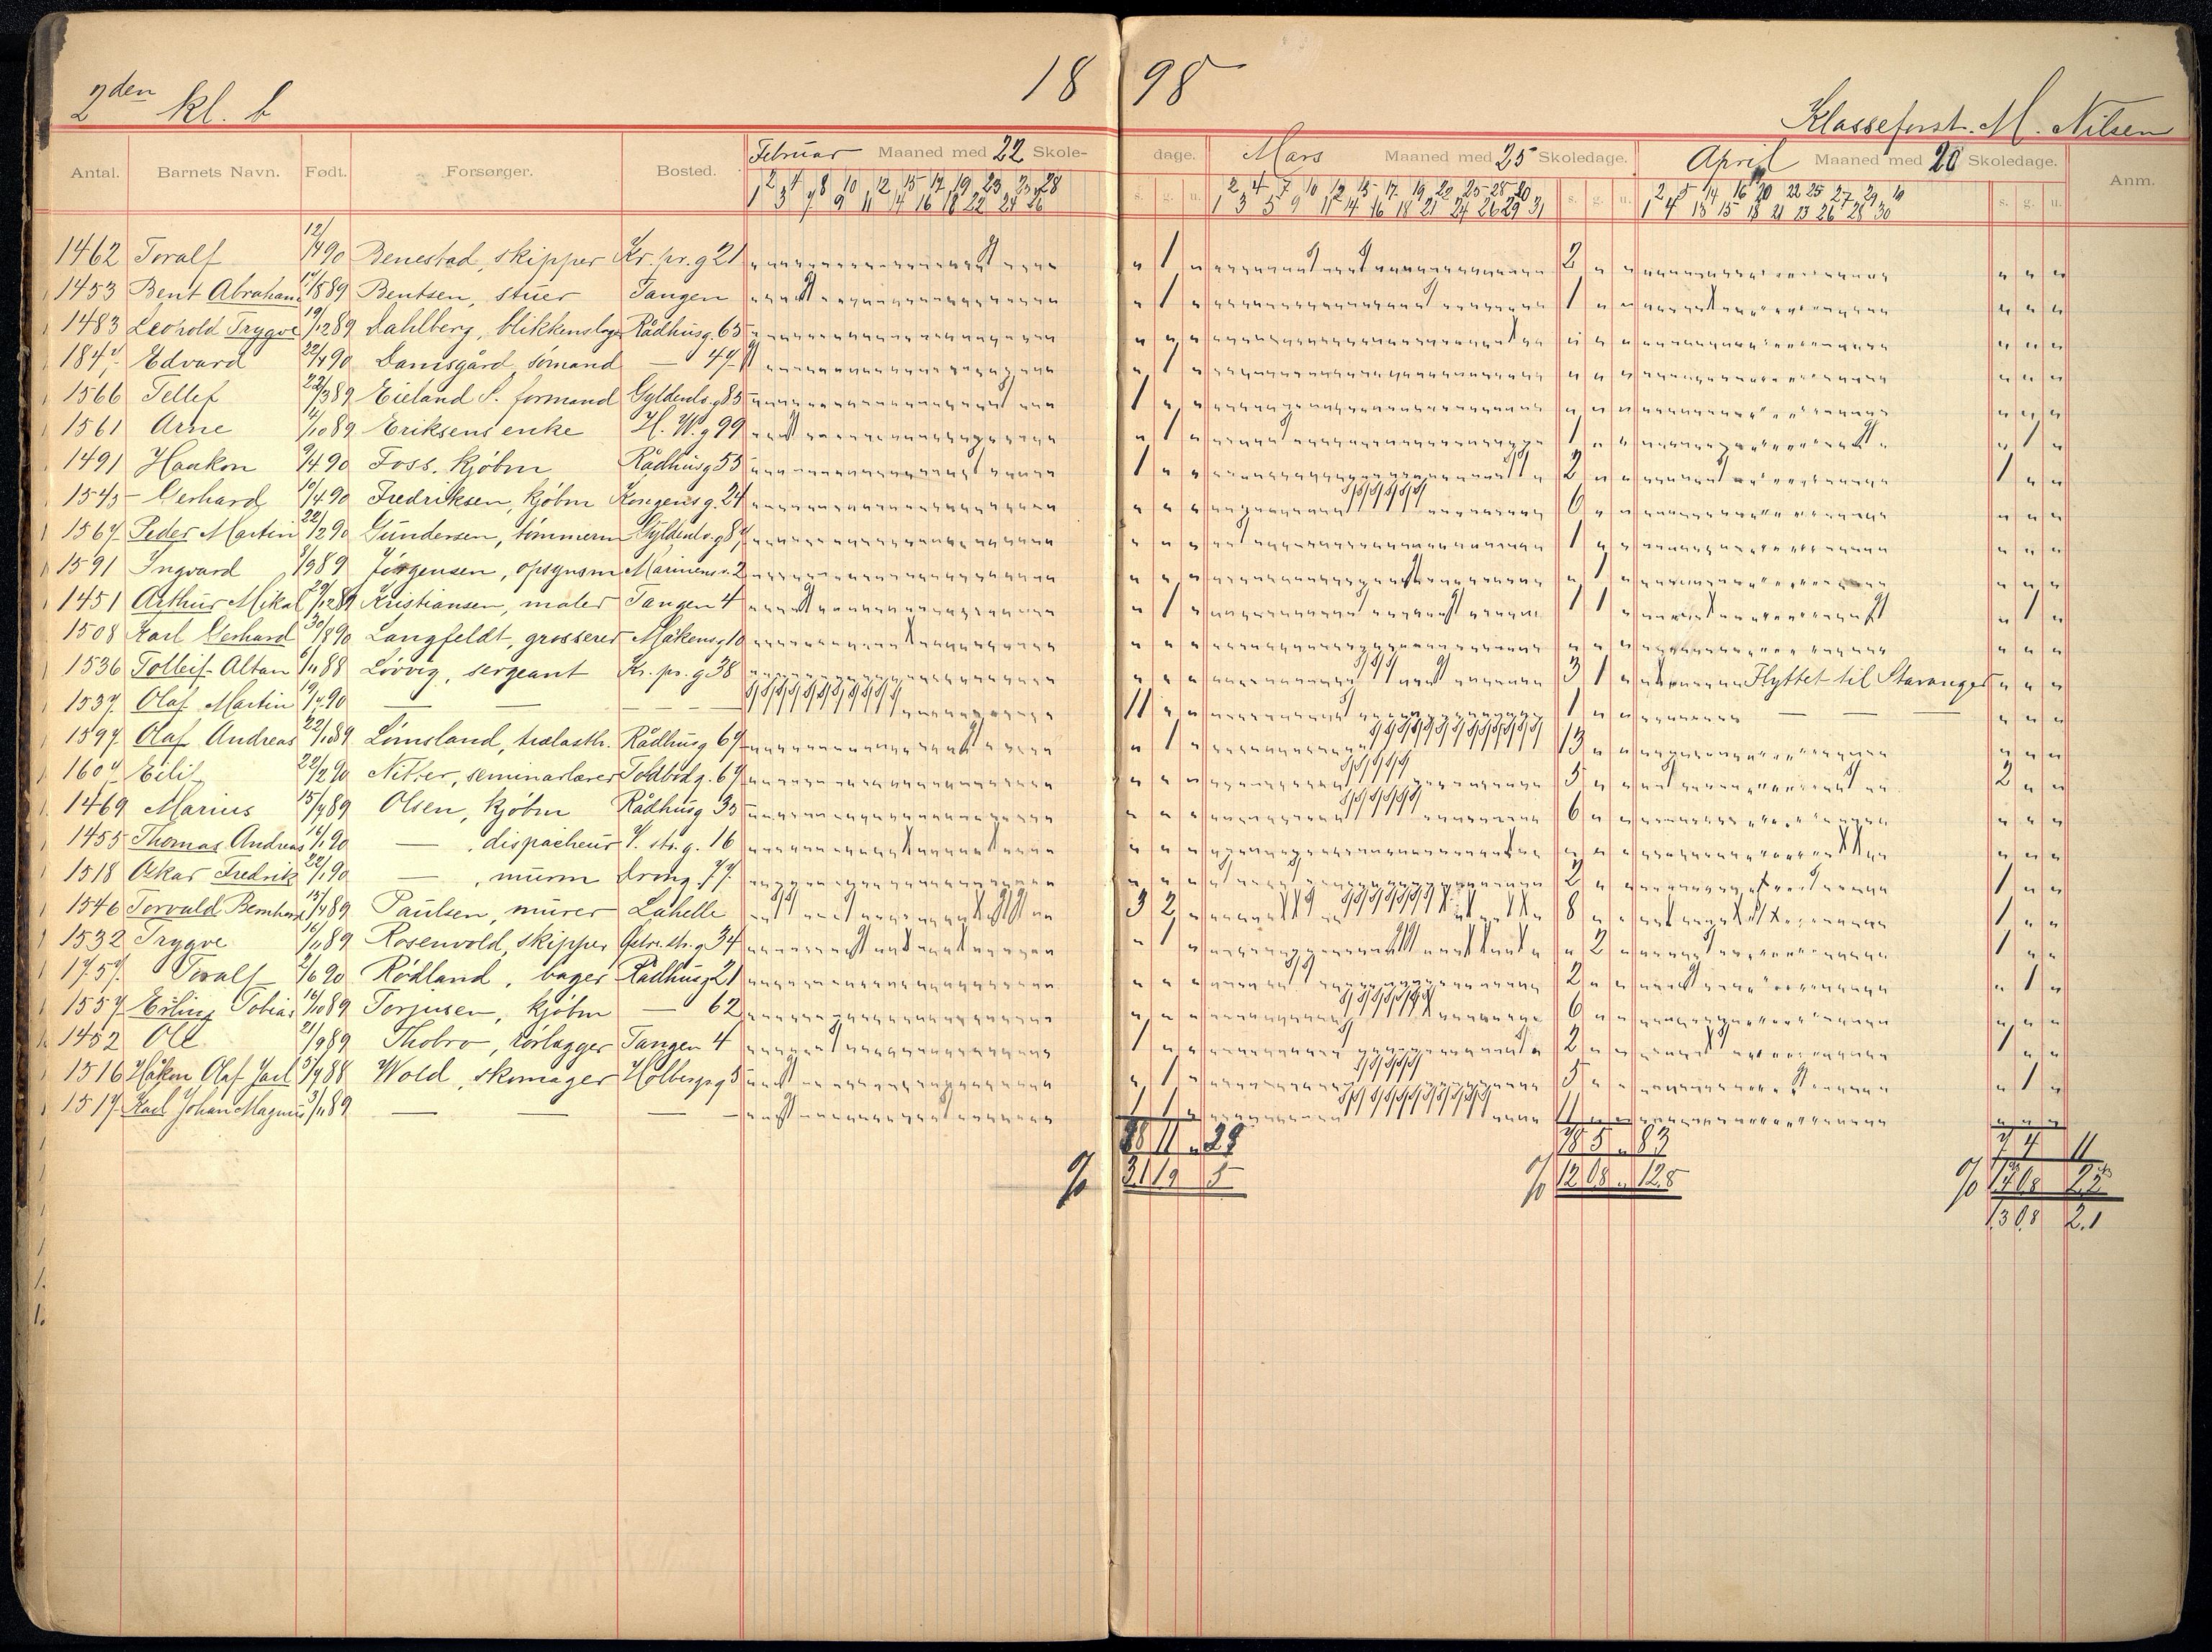 2den kl. b 18 98 Klasseforst. M. Nilsen
Antal. Barnets Navn. Født. Forsørger. Bosted. Februar Maaned med 22 Skole- dage. Mars Maaned med 25 Skoledage. April Maaned med 20 Skoledage. Anm.
2 4 8 10 12 15 17 19 23 25 28 2 4 7 10 12 15 17 19 22 25 28 30 2 5 14 16 20 22 25 27 29
1 3 7 9 11 14 16 18 22 24 26 s. g. u. 1 3 5 9 11 14 16 18 21 24 26 29 31 s. g. u. 1 4 13 15 18 21 23 26 28 30 s. g. u.
1462 Toralf 12/4 90 Benestad, skipper Kr. pr. g 21 " 1 " 2 " " " " "
1453 Bent Abraham 89 Bentsen, stuer Tangen " 1 " 1 " " " " "
1483 Leopold Trygve 19/12 89 Dahlberg, blikkenslager Rådhusg. 65 " " " " " "
Edvard 22/4 90 Damsgård, sømand — 47 " 1 " " " " " " "
1566 Tellef 22/3 89 Eieland S. formand Gyldenlv. g 85 1 " " " " " " " "
1561 Arne 4/10 89 Eriksens enke H. W. g 99 " 1 " 1 " " " 1 "
1491 Haakon 9/4 90 Foss, kjøbm Rådhusg 55 1 " " 2 " " 1 " "
1545 Gerhard 10/4 90 Fredriksen, kjøbm Kongens g. 24 " " " 6 " " " " "
1567 Peder Martin 22/2 90 Gundersen, tømmerm Gyldenlv. g 87 " " " 1 " " " " "
1591 Ingvard 8/9 89 Jørgensen, opsynsm Marinens v. 2 " " " " 1 " " " "
1451 Arthur Mikal 29/12 89 Kristiansen, maler Tangen 4 " 1 " 1 1 " " 1 "
1508 Karl Gerhard 30/8 90 Langfeldt, grosserer Måkensg 10 " " " " " " " " "
1536 Tolleif Altan 6/11 88 Løvvig, sergeant Kr. pr. g 38 " " " 3 1 " Flyttet til Stavanger " " "
1537 Olaf Martin 19/4 90 — — — — — 11 " " 1 " " — — — " " "
1597 Olaf Andreas 22/1 89 Lømsland, trælasth. Rådhusg 67 " 1 " 13 " " " " "
1607 Eilif 22/2 90 Nitter, seminarlærer Toldbodg. 67 " " " 5 " " 2 " "
1469 Marius 15/7 89 Olsen, kjøbm Rådhusg 35 " " " 6 " " " " "
1455 Thomas Andreas 16/1 90 — , dispacheur V. str. g. 16 " " " " " " " " "
1518 Oskar Fredrik 22/1 90 — , murm Drong. 77 " " " 2 " " 1 " "
1546 Torvald Bernhard 15/4 89 Paulsen, murer Lahelle 3 2 " 8 " " 1 " "
1532 Trygve 16/11 89 Rosenvold, skipper Østre. str. g 34 " 1 " " 2 " 1 " "
1757 Toralf 2/6 90 Rødland, bager Rådhusg 21 " " " 2 " " " 1 "
1557 Erling Tobias 16/10 89 Torjusen, kjøbm — 62 " " " 6 " " " " "
1452 Ole 21/9 89 Thobro, rørlægger Tangen 4 1 " " 2 " " 1 " "
1516 Håkon Olaf Jarl 5/7 88 Wold, skomager Holbergsg 5 " 1 " 5 " " " 1 "
1517 Karl Johan Magnus 3/11 89 — — — — 1 1 " 11 " " " " "
18 11 " 29 78 5 " 83 7 4 11
% 3.1 1.9 5 % 12 0.8 " 12.8 % 1.4 0.8 2.2
1.3 0.8 2.1